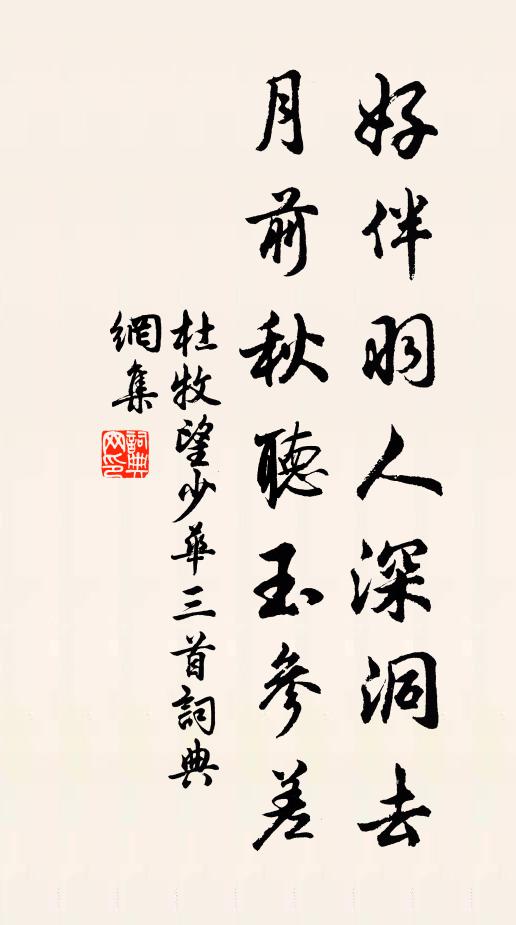 好伴羽人深洞去
月前秋聽玉參差
杜牧望少華三首詞典
網集
詞典
网印